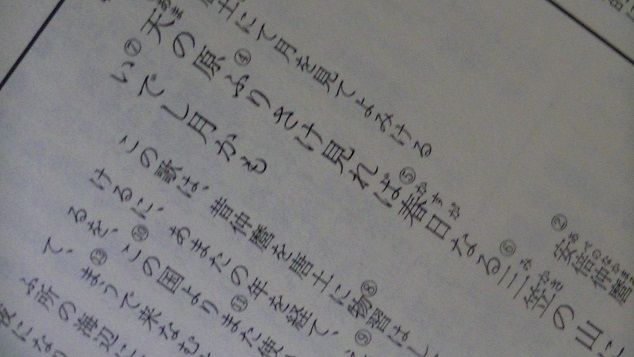 安倍仲麿
土にて月を見てよみける
天の原ふりさけ見れば春日なる三笠の山に
いでし月かも
この歌は、昔仲麿を唐土に物習はし
けるに、あまたの年を経て、
るを、この国よりまた使
て、まうで来なむ
ふ所の海辺に
夜になり